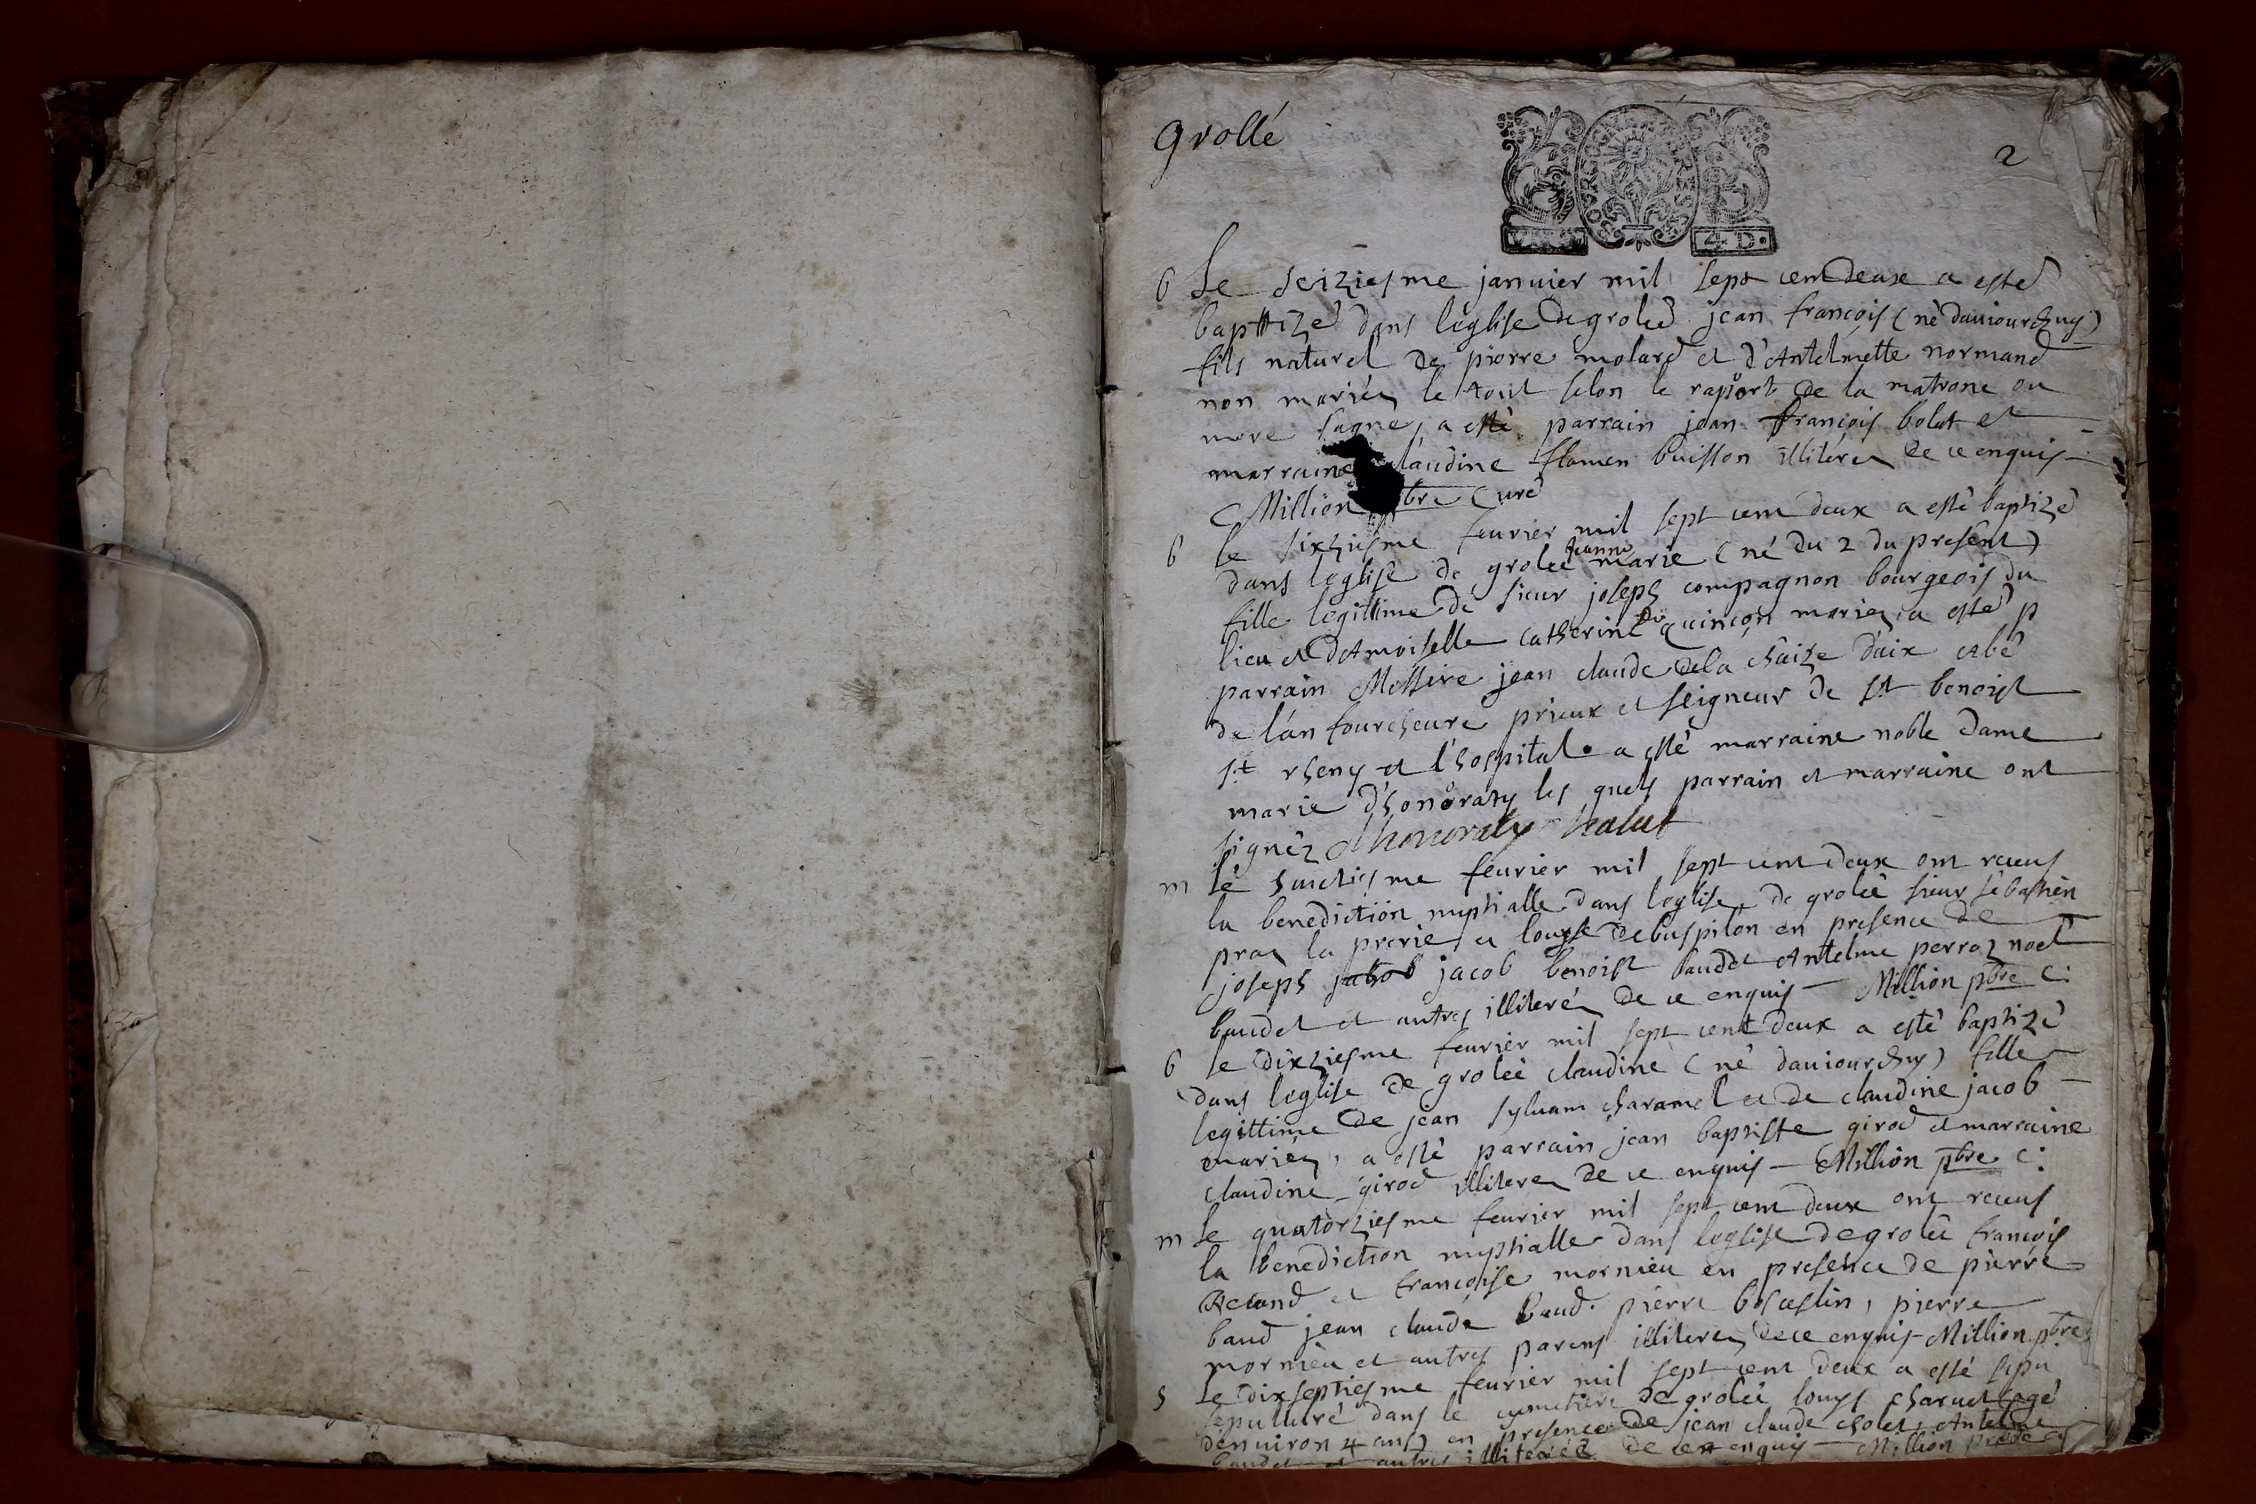 grollé
2
4 D.
b Le seiziesme janvier mil sept cent deux a esté
baptizé dans leglise de groleé jean françois (né daujourdhuy)
fils naturel de pierre molard et d'Antelmette normand
non mariés le tout selon le raport de la matrone ou
mere sagne, a esté parrain jean françois bolut et
marraine claudine flamen buisson illiteres de ce enquis
Million pbre Curé
b le sixziesme feurier mil sept cent deux a esté baptizé
dans leglise de groleé jeanne marie (né du 2 du present)
fille legittime de sieur joseph compagnon bourgeois du
lieu et dAmoiselle catherine du quinçon mariez a esté p
parrain Messire jean claude dela chaize d'aix Abé
de lan fourcheure prieux et seigneur de st benoist
st rheny et l'hospital a esté marraine noble dame
marie d'honoraty les quels parrain et marraine ont
signéz dhonoraty
m le huictiesme feurier mil sept cent deux ont receus
la benediction nuptialle dans leglise de groleé sieur sebastien
pra la prerie et louyse debuspilon en presence de
joseph jacob benoist baudet Antelme perroz noel
baudet et autres illiterés de ce enquis - Million pbre c:
b le dixziesme feurier mil sept cent deux a esté baptizé
dans leglise de groleé claudine (né daujourdhuy) fille
legittime de jean syluam charamel et de claudine jacob
mariés, a esté parrain jean baptiste girod et marraine
claudine girod illiteres de ce enquis - Million pbre c:
m le quatorziesme feurier mil sept cent deux ont receus
la benediction nuptialle dans leglise de groleé françois
et françoise mornieu en presence de pierre
baud jean claude baud pierre boscaslin, pierre
mornieu et autres parens illiteres de ce enquis - Million pbre
s le dixseptiesme feurier mil sept cent deux a esté sepu
sepulturé dans le cymetiere de groleé louys charuet (agé
denuiron 4 ans) en presence de jean claude cholet, Antelme
baudet et autres illiteréz de ce enquis - Million